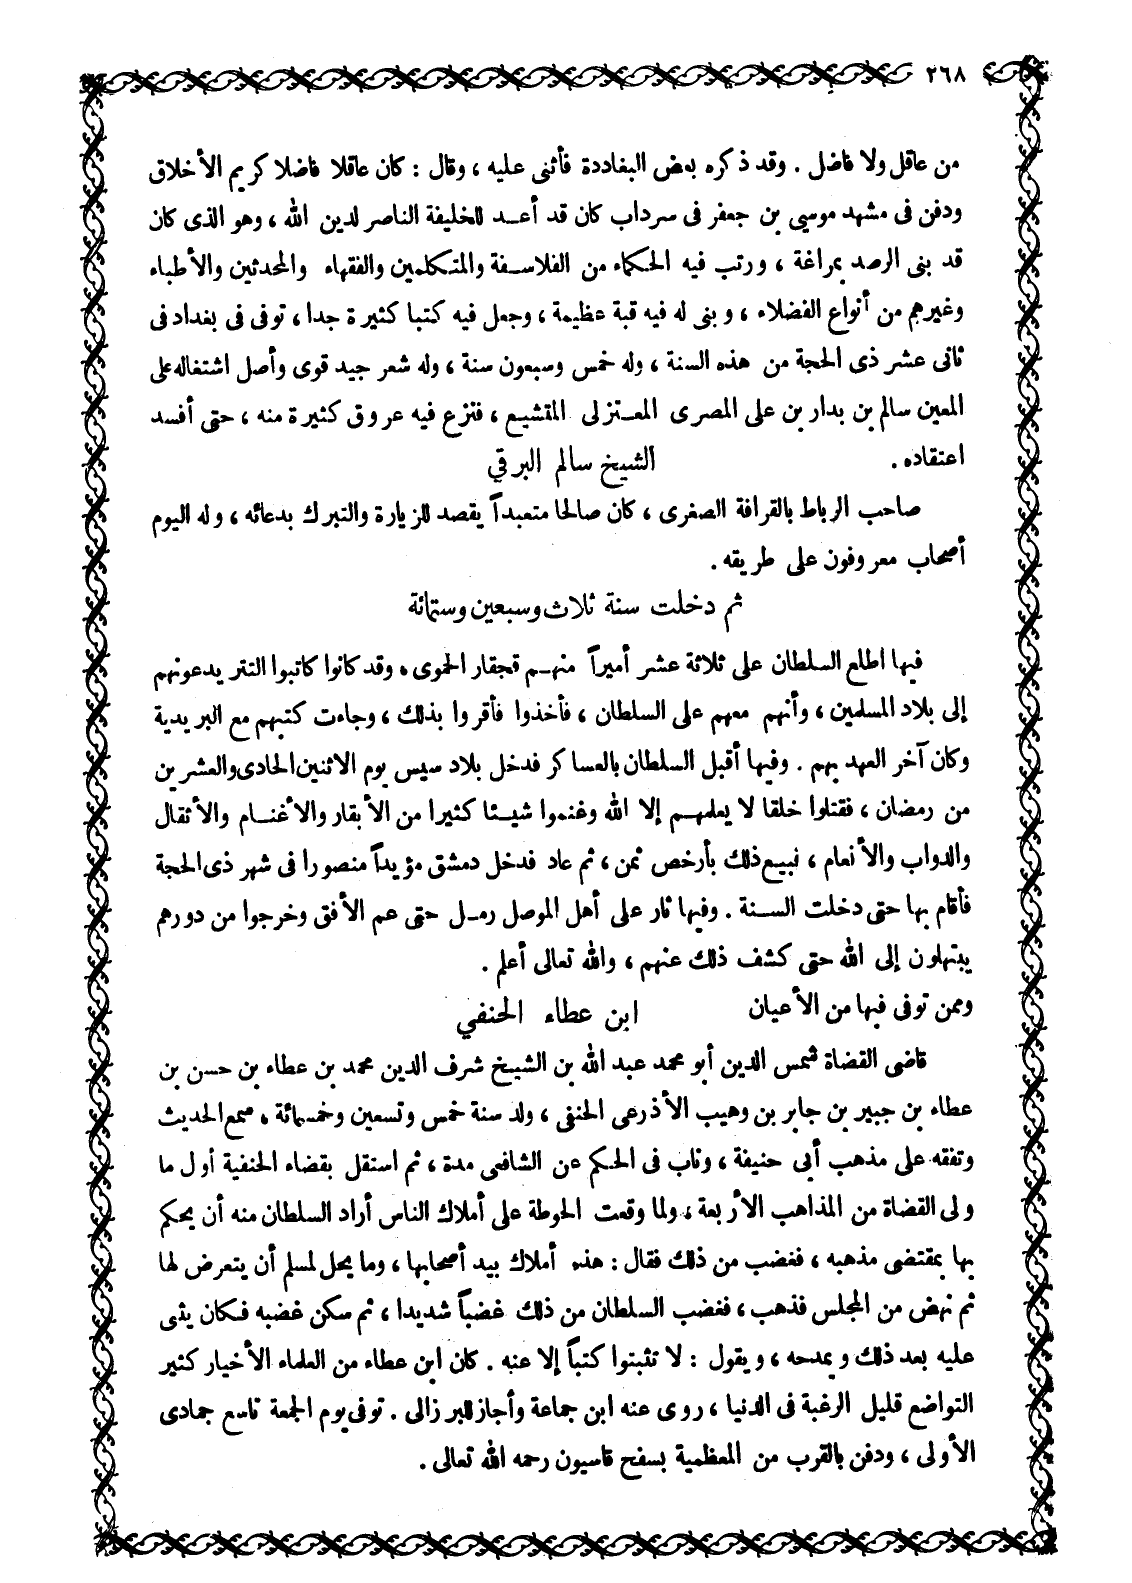 ٢٦٨
من عاقل ولا فاضل . وقد ذكره بعض البغاددة فأثنى عليه ، وقال : كان عاقلا فاضلا كريم الأخلاق
ودفن فى مشهد موسى بن جعفر فى سرداب كان قد أعد للخليفة الناصر لدين الله ، وهو الذى كان
قد بنى الرصد بمراغة ، ورتب فيه الحكماء من الفلاسفة والمتكلمين والفقهاء والمحدثين والأطباء
وغيرهم من أنواع الفضلاء ، وبنى له فيه قبة عظيمة ، وجعل فيه كتبا كثيرة جدا ، توفى فى بغداد فى
ثانى عشر ذى الحجة من هذه السنة ، وله خمس وسبعون سنة ، وله شعر جيد قوى وأصل اشتغاله على
المعين سالم بن بدار بن على المصرى المعتزلى المتشيع ، فنزع فيه عروق كثيرة منه ، حتى أفسد
اعتقاده .
الشيخ سالم البرقي
صاحب الرباط بالقرافة الصغرى ، كان صالحا متعبداً يقصد للزيارة والتبرك بدعائه ، وله اليوم
أصحاب معروفون على طريقه .
ثم دخلت سنة ثلاث وسبعين وستمائة
فيها اطلع السلطان على ثلاثة عشر أميراً منهم قجقار الحموى ، وقد كانوا كاتبوا التتر يدعونهم
إلى بلاد المسلمين ، وأنهم معهم على السلطان ، فأخذوا فأقروا بذلك ، وجاءت كتبهم مع البريدية
وكان آخر العهد بهم . وفيها أقبل السلطان بالعساكر فدخل بلاد سيس يوم الاثنين الحادى والعشرين
من رمضان ، فقتلوا خلقا لا يعلمهم إلا الله وغنموا شيئا كثيرا من الأبقار والأغنام والأثقال
والدواب والأنعام ، نبيع ذلك بأرخص ثمن ، ثم عاد فدخل دمشق مؤيداً منصورا فى شهر ذى الحجة
فأقام بها حتى دخلت السنة . وفيها ثار على أهل الموصل رمل حتى عم الأفق وخرجوا من دورهم
يبتهلون إلى الله حتى كشف ذلك عنهم ، والله تعالى أعلم .
وممن توفى فيها من الأعيان
ابن عطاء الحنفي
قاضى القضاة شمس الدين أبو محمد عبد الله بن الشيخ شرف الدين محمد بن عطاء بن حسن بن
عطاء بن جبير بن جابر بن وهيب الأذرعى الحنفى ، ولد سنة خمس وتسعين وخمسمائة ، سمع الحديث
وتفقه على مذهب أبى حنيفة ، وناب فى الحكم عن الشافعى مدة ، ثم استقل بقضاء الحنفية أول ما
ولى القضاة من المذاهب الأربعة ، ولما وقعت الحوطة على أملاك الناس أراد السلطان منه أن يحكم
بها بمقتضى مذهبه ، فغضب من ذلك فقال : هذه أملاك بيد أصحابها ، وما يحل لمسلم أن يتعرض لها
ثم نهض من المجلس فذهب ، فغضب السلطان من ذلك غضباً شديدا ، ثم سكن غضبه فكان يثنى
عليه بعد ذلك ويمدحه ، ويقول : لا تثبتوا كتباً إلا عنه . كان ابن عطاء من العلماء الأخيار كثير
التواضع قليل الرغبة فى الدنيا ، روى عنه ابن جماعة وأجاز للبرزالى . توفى يوم الجمعة تاسع جمادى
الأولى ، ودفن بالقرب من المعظمية بسفح قاسيون رحمه الله تعالى .